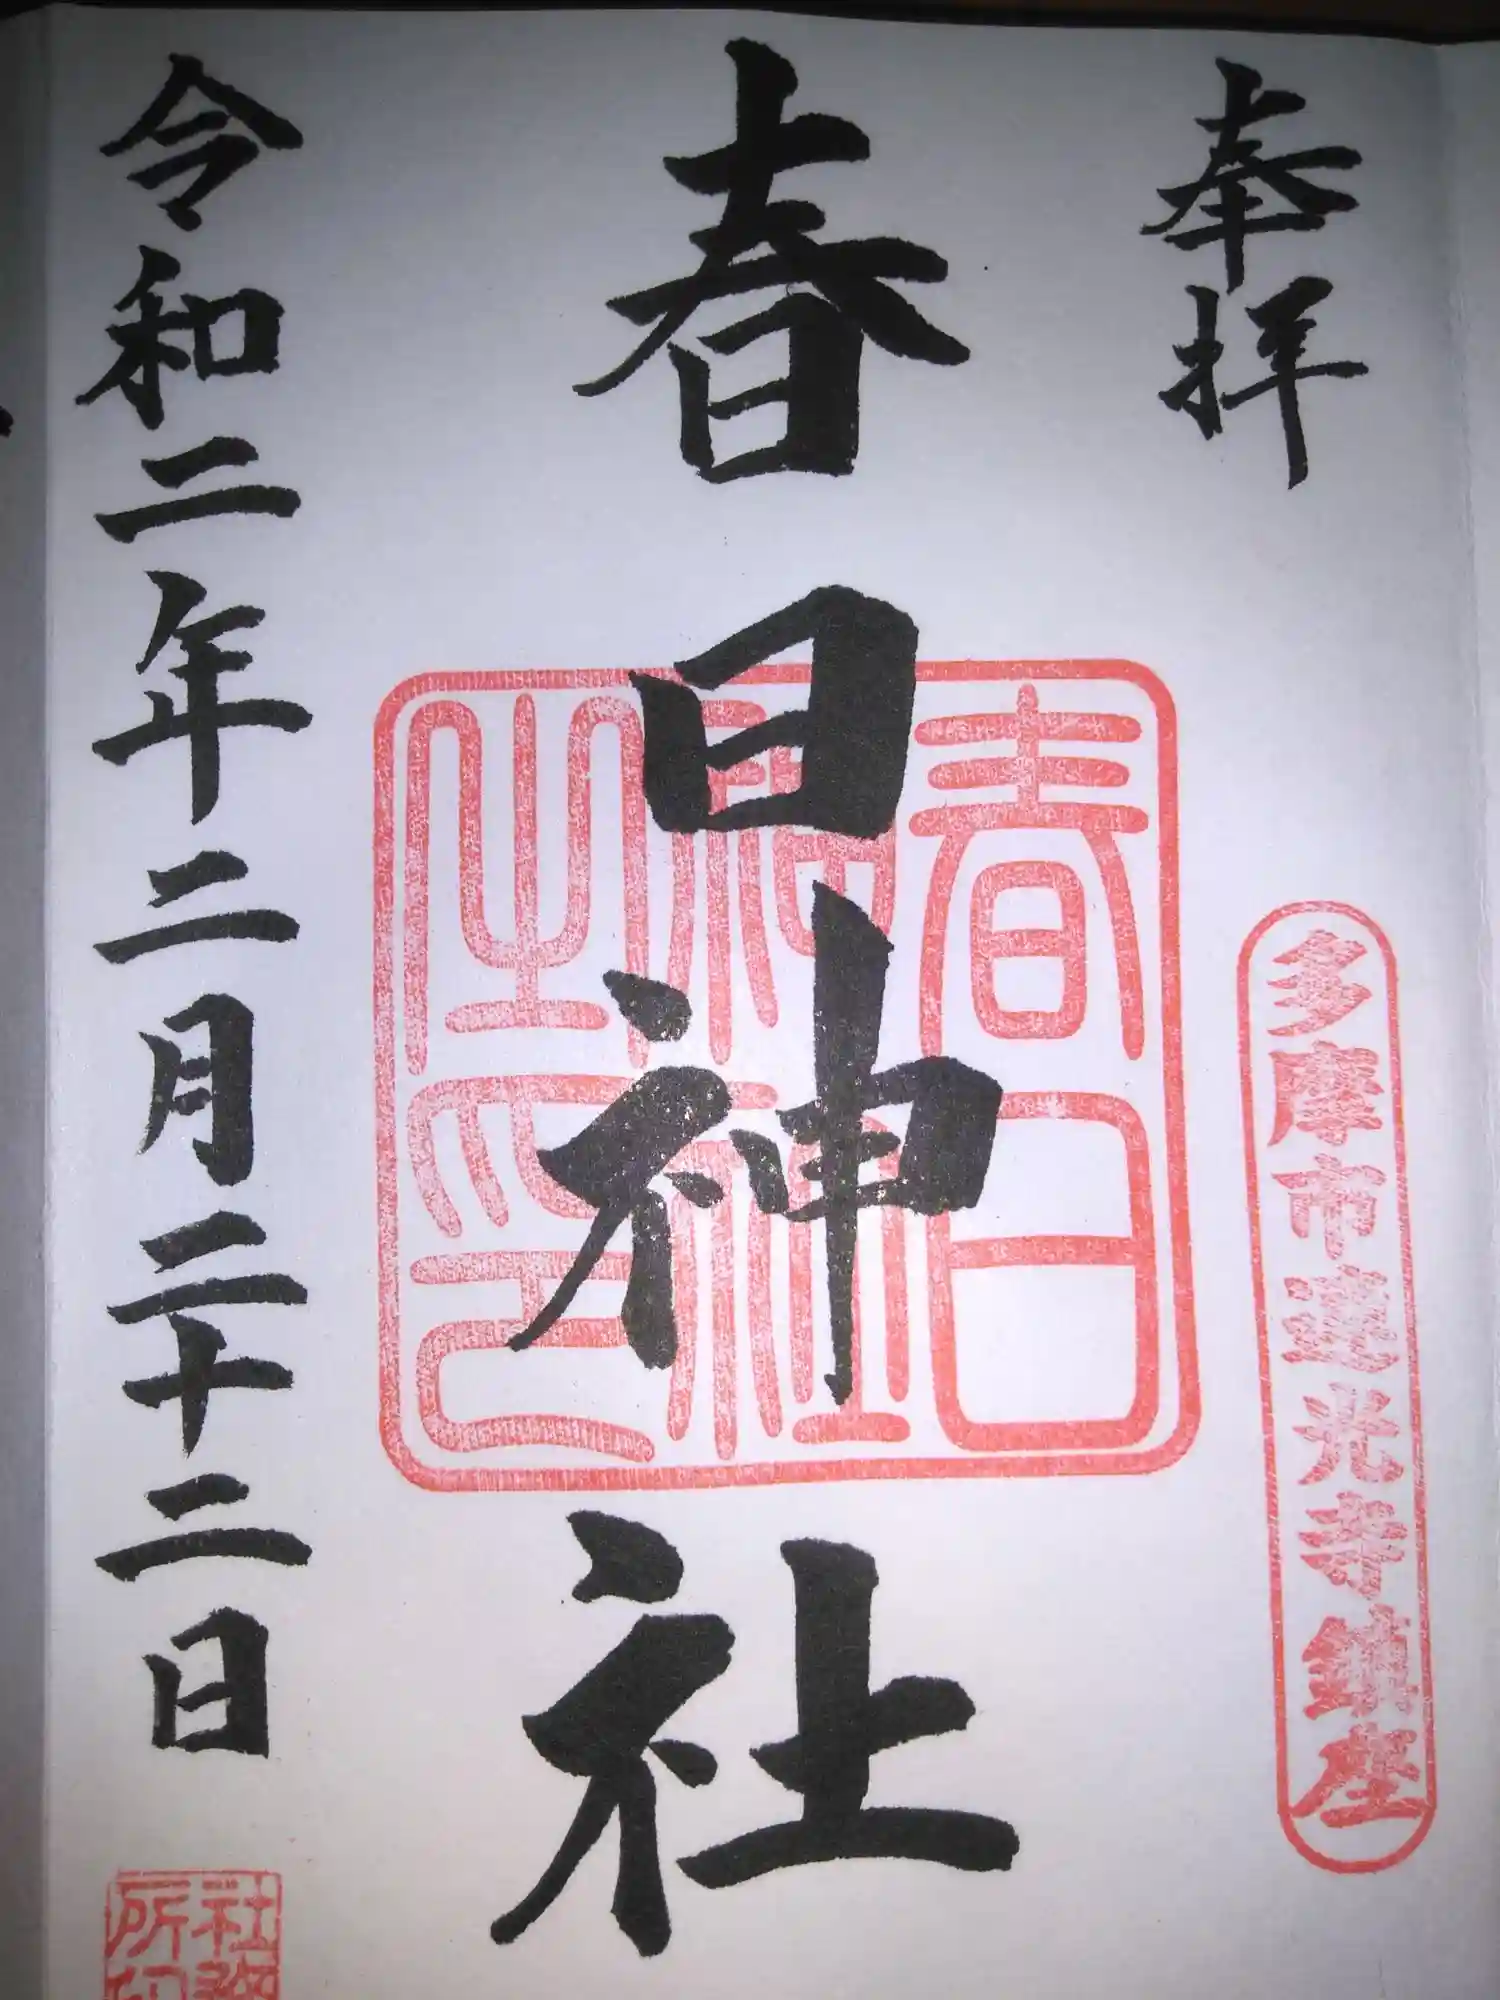 奉拝
多摩市連光寺鎮座
春日神社
春日
神社
之印
令和二年二月二十二日
社務
所印